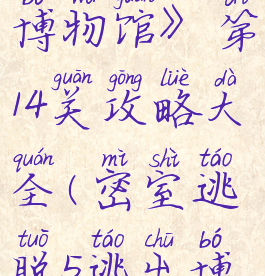 bó wù guǎn dì
博物馆》第
guān gōng lüè dà
14关攻略大
quán mì shì táo
全(密室逃
tuō táo chū bó
脱5逃出博